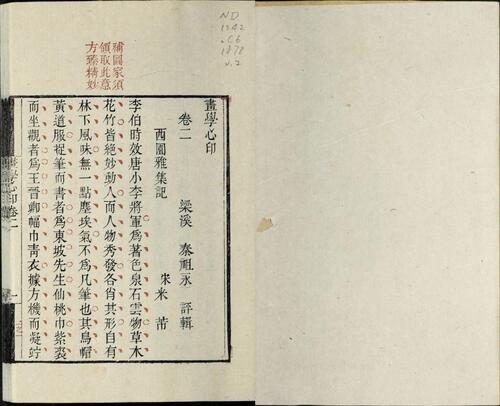 ND
1242
.C6
1878
v.2
補圖家須
領取此意
方臻精妙
畫學心印
卷二
梁溪 秦祖永 評輯
西園雅集記
宋 米 芾
李伯時效唐小李將軍爲著色泉石雲物草木
花竹皆絕妙動人而人物秀發各肖其形自有
林下風味無一點塵埃氣不爲凡筆也其烏帽
黃道服捉筆而書者爲東坡先生仙桃巾紫裘
而坐觀者爲王晉卿幅巾青衣據方機而凝竚
畫學心印卷二
一